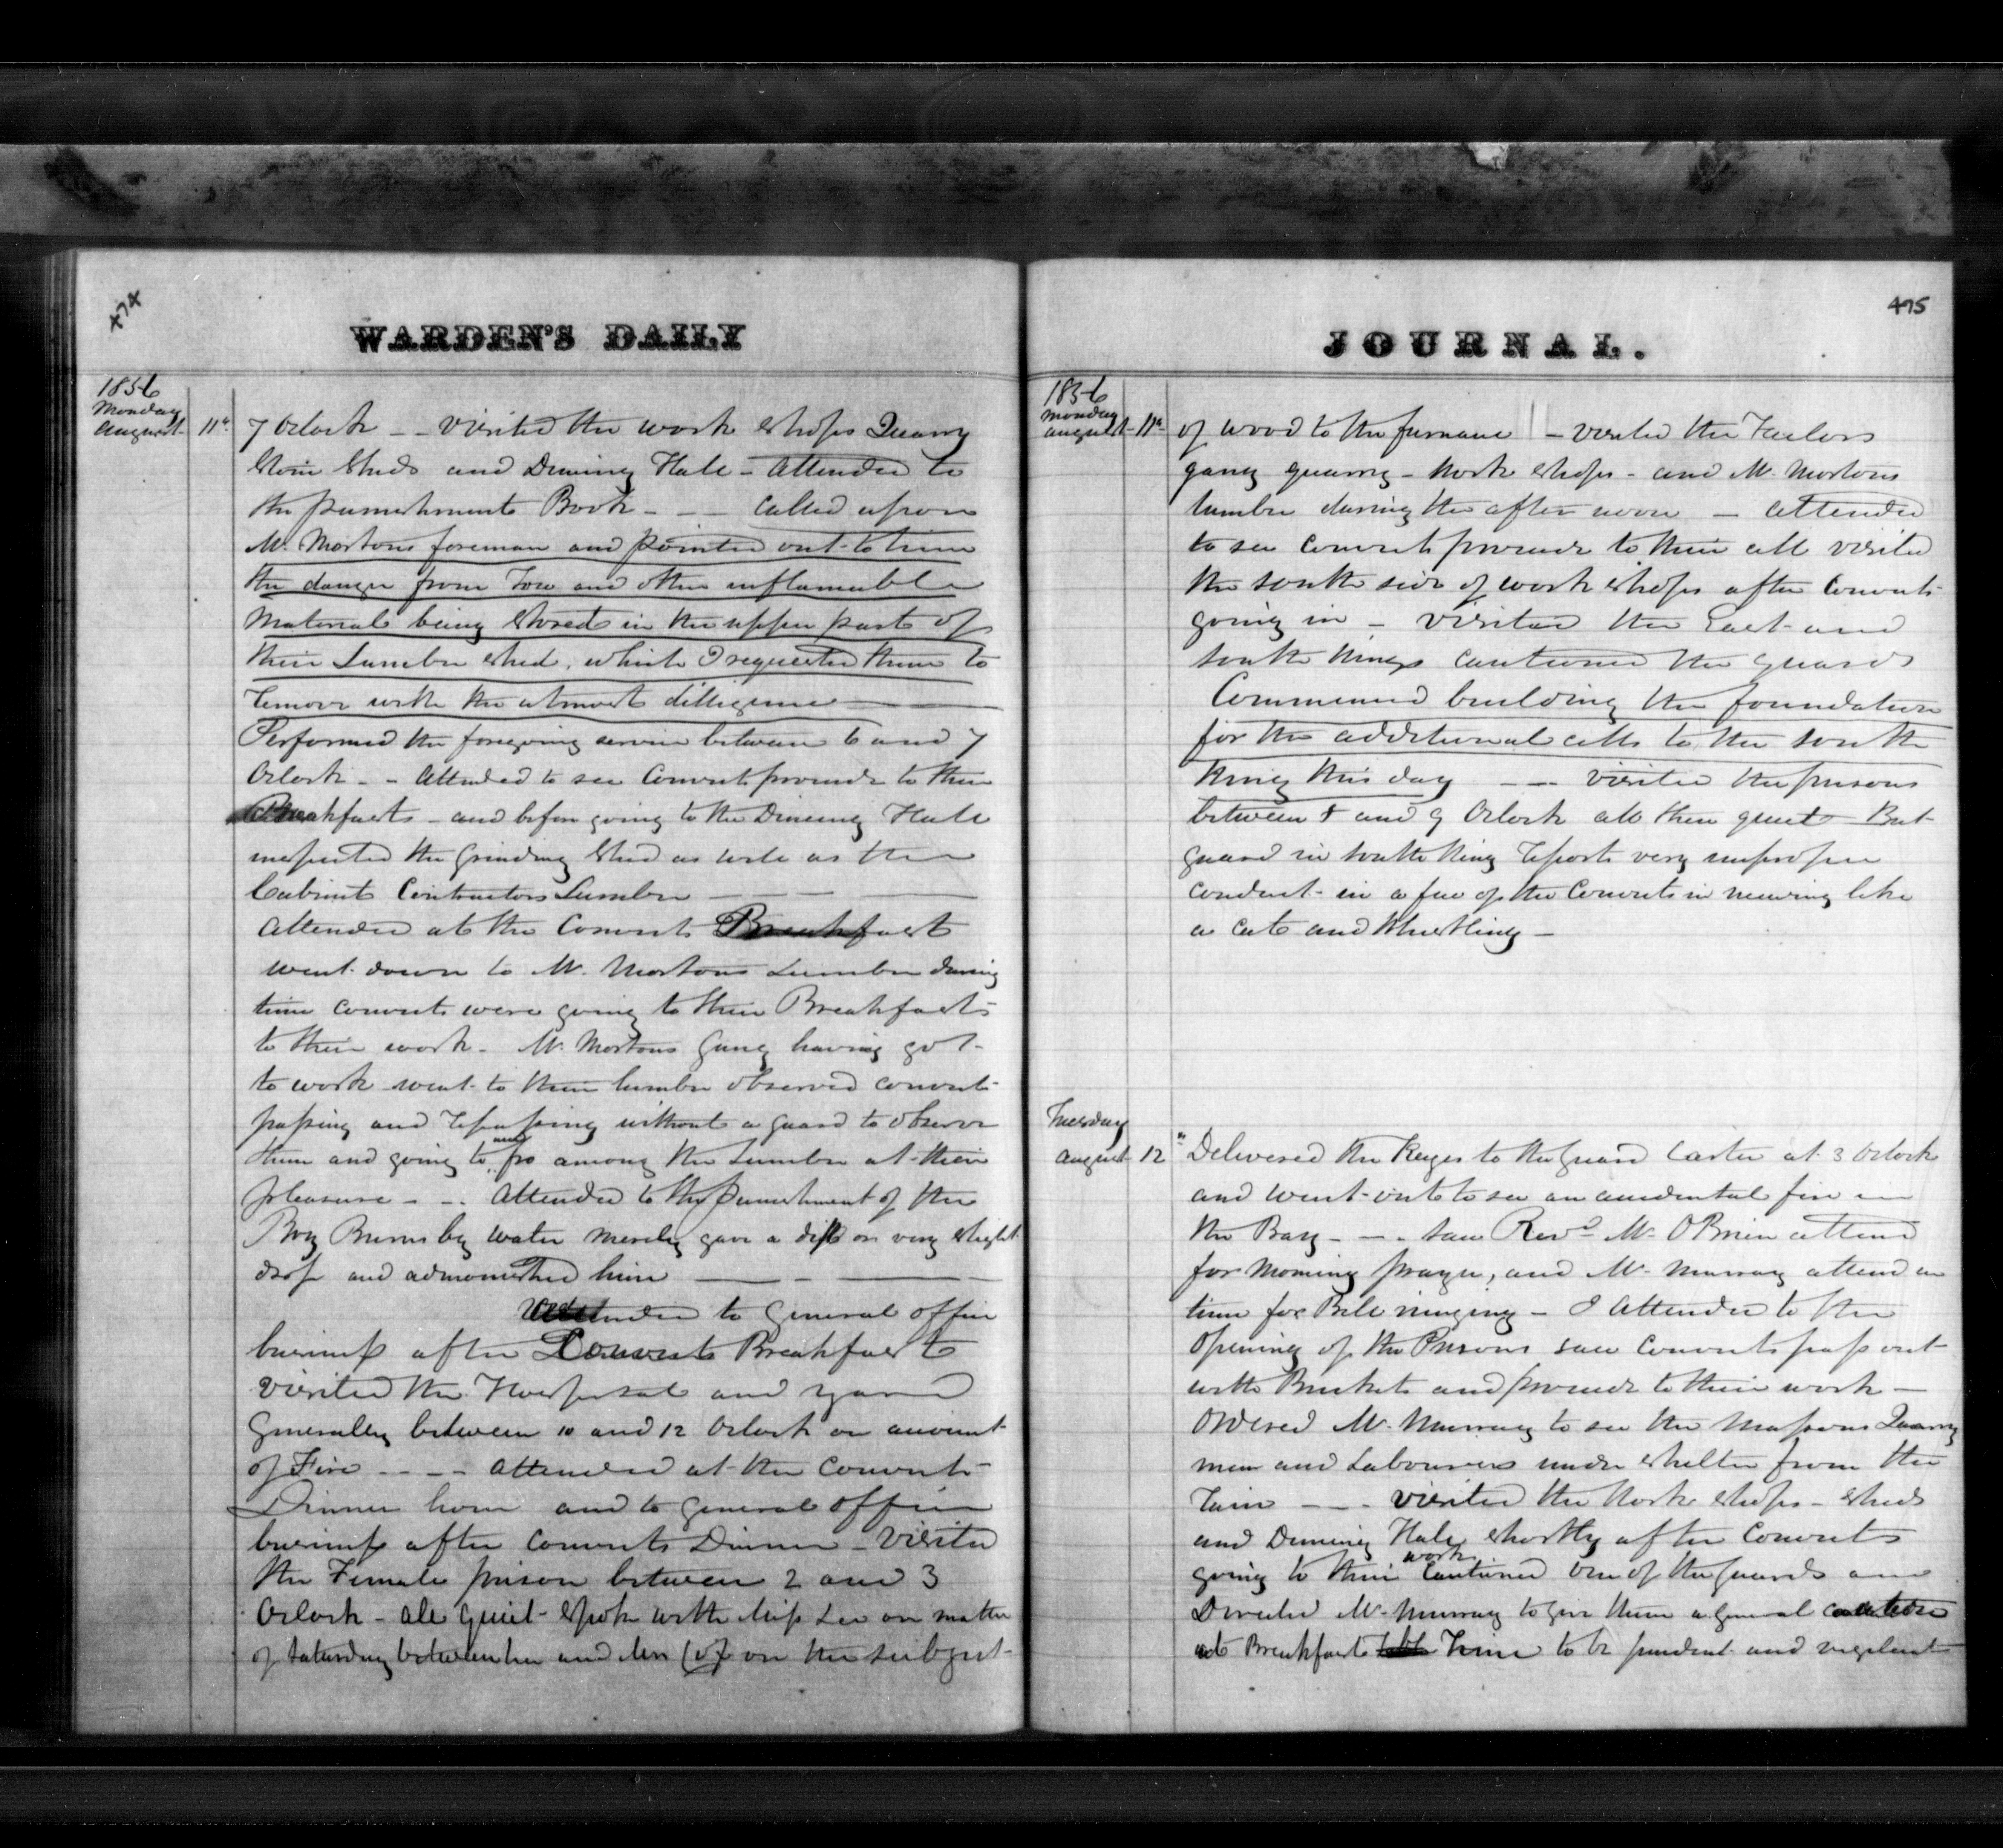 474
WARDEN'S DAILY
1856
Monday
August 11th
7 Oclock - - visited the work shops Quarry
Stone Sheds and Dinning Hall - Attended to
the punishment Book - - - Called upon
Mr. Mortons foreman and pointed out to him
the danger from Tow and other inflamable
Material being stored in the upper part of
their Lumber shed, which I requested them to
remove with the utmost dilligence
Performed the foregoing service between 6 and 7
Oclock - - Attended to see Convicts proceede to their
Breakfast - and before going to the Dinning Hall
inspected the Grinding Shed as well as the
Cabinet Contractors Lumber
Attended at the Convicts Breakfast
went down to Mr. Mortons Lumber during
time convicts were going to their Breakfast
to their work - Mr. Mortons Gang having got
to work went to their lumber observed convicts
passing and repassing without a guard to observe
them and going to and fro among the Lumber at their
pleasure - - . Attended to the punishment of the
Boy Burns by water merely gave a dip or very slight
drop and admonished him
Attended to General office
business after Convicts Breakfast
Visited the Hospital and yard
Generally between 10 and 12 Oclock on account
of Fire - - - - Attended at the Convicts
Dinner hour and to General office
business after Convicts Dinner - Visited
the Female prison between 2 and 3
Oclock - all quiet - spoke with Miss Lee on matter
of Saturday between her and Mrs Cox on the subject
475
JOURNAL.
1856
Monday
August 11th
of wood to the furnace - visited the Tailors
gang quarry - Work shops - and Mr. Mortons
lumber during the after noon - attended
to see Convicts proceede to their cell visited
the south side of work shops after Convicts
going in - Visited the East and
South Wings Cautioned the Guards
Commenced building the foundation
for the additional cells to the South
Wing this day - - - Visited the prisons
between 8 and 9 Oclock all then quiet But
guard in South Wing reports very improper
conduct in a few of the Convicts in mewing like
a Cat and Whistling -
Tuesday
August 12th
Delivered the Keys to the Guard Carter at 3 Oclock
and went out to see an accidental fire in
the Bay - - . Saw Revd. Mr. OBrien attend
for Morning prayer, and Mr. Murray attend in
time for Bell ringing - I Attended to the
Opening of the Prisons saw Convicts pass out
with Buckets and proceede to their work -
Ordered Mr. Murray to see the Massons Quarry
men and Labourers under shelter from the
rain - - - Visited the Work shops - sheds
and Dinning Hall shortly after Convicts
going to their work Cautioned one of the Guards and
Directed Mr. Murray to give them a general caution
at Breakfast Time to be prudent and vigilant